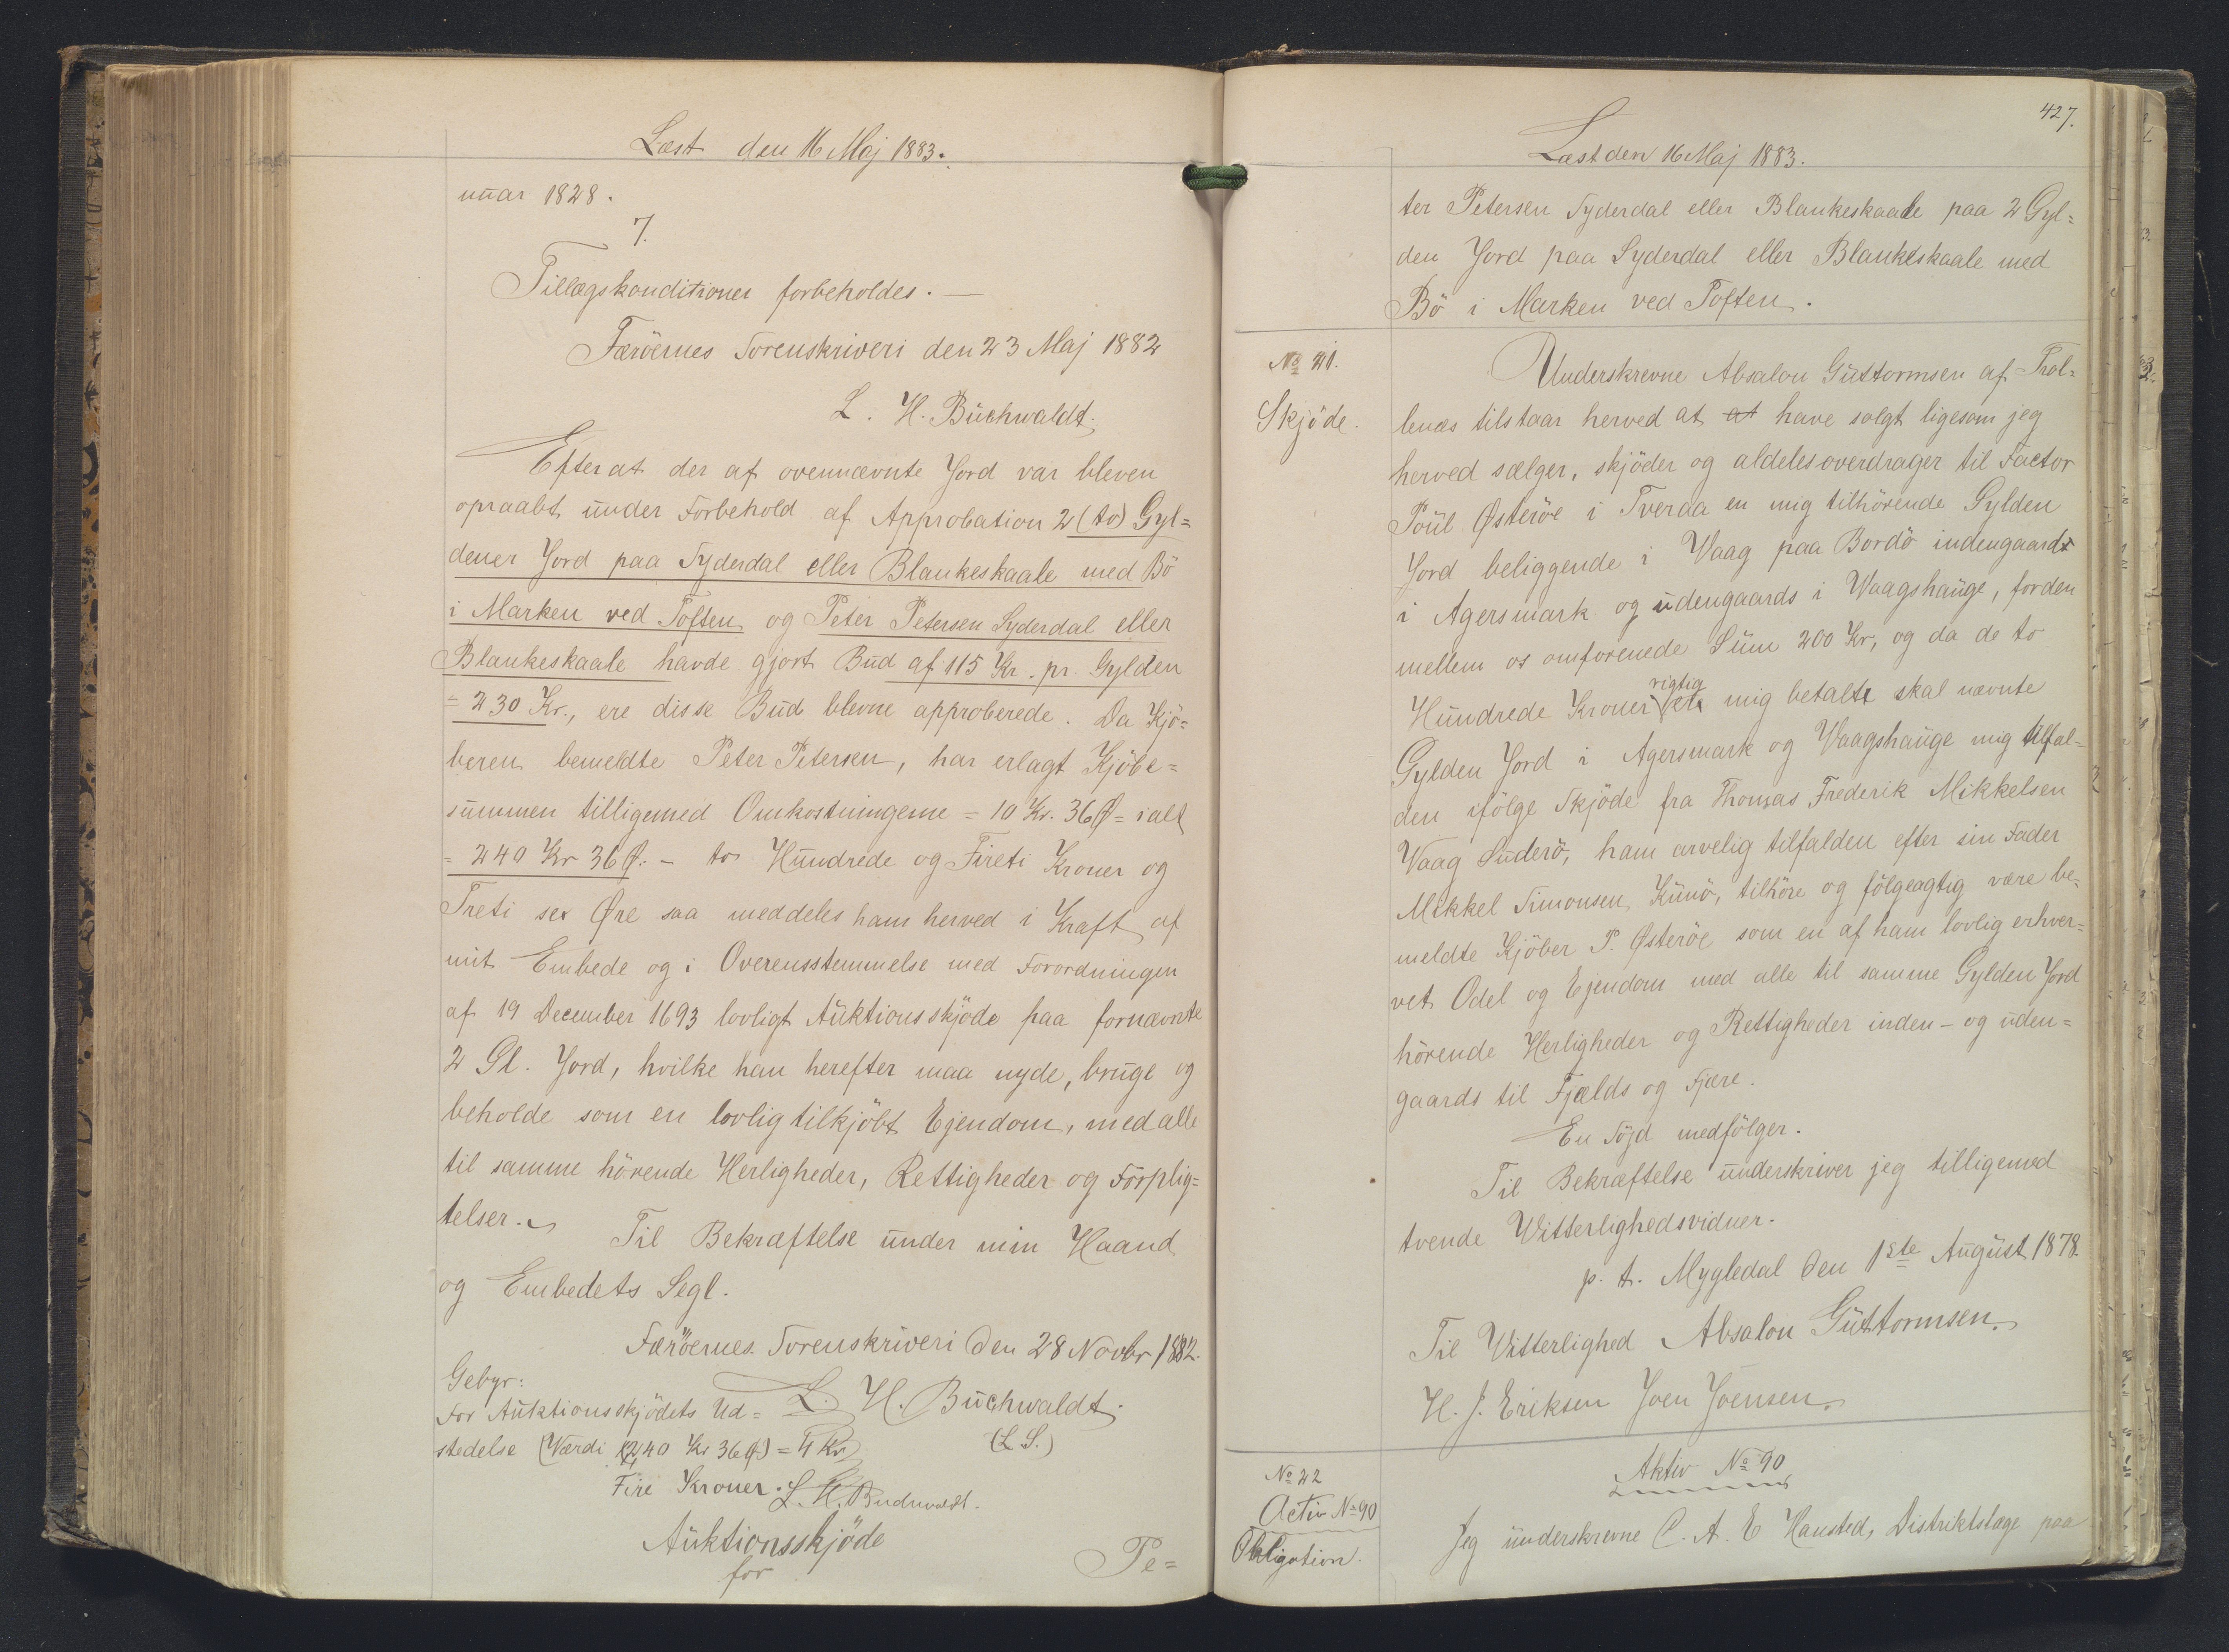 Læst den 16 Maj 1883.
nuar 1828.
7.
Tillægskonditioner forbeholdes. —
Færöernes Sorenskriveri den 23 Maj 1882
L. H. Buchwaldt.
Efterat der af ovennævnte Jord var bleven
opraabt under Forbehold af Approbation 2 (to) Gyl=
dener Jord paa Syderdal eller Blankeskaale med Bö
i Marken ved Toften og Peter Petersen Syderdal eller
Blankeskaale havde gjort Bud af 115 Kr. pr. Gylden
= 230 Kr., ere disse Bud blevne approberede. Da Kjö=
beren bemeldte Peter Petersen, har erlagt Kjöbe=
summen tilligemed Omkostningerne = 10 Kr. 36 Ø = ialt
= 240 Kr 36 Ø. - to Hundrede og Fireti Kroner og
Treti sex Øre saa meddeles ham herved i Kraft af
mit Embede og i Overensstemmelse med Forordningen
af 19 December 1693 lovligt Auktionsskjöde paa fornævnte
2 Gl. Jord, hvilke han herefter maa nyde, bruge og
beholde som en lovlig tilkjöbt Ejendom, med alle
til samme hörende Herligheder, Rettigheder og Forplig=
telser. Til Bekræftelse under min Haand
og Embedets Segl.
Færöernes Sorenskriveri den 28 Novbr 1882.
Gebyr:
For Auktionsskjödets Ud= L. H. Buchwaldt.
stedelse (Værdi 240 Kr 36 Ø) = 4 Kr (L. S.)
Fire Kroner. L. H. Buchwaldt.
Auktionsskjöde
for
Pe=
427.
Læst den 16 Maj 1883.
ter Petersen Syderdal eller Blankeskaale paa 2 Gyl=
den Jord paa Syderdal eller Blankeskaale med
Bö i Marken ved Toften.
No 21.
Skjöde.
Underskrevne Absalon Guttormsen af Trol=
lenæs tilstaar herved at at have solgt ligesom jeg
herved sælger, skjöder og aldeles overdrager til Factor
Poul Østeröe i Tveraa en mig tilhörende Gylden
Jord beliggende i Waag paa Bordö indengaards
i Agersmark og udengaards i Waagshauge, for den
mellem os omforenede Sum 200 Kr, og da de to
Hundrede Kroner rigtig ere mig betalte skal nævnte
Gylden Jord i Agersmark og Vaagshauge mig tilfal=
den ifölge Skjöde fra Thomas Frederik Mikkelsen
Waag Suderö, ham arvelig tilfalden efter sin Fader
Mikkel Simonsen, Kunö, tilhöre og fölgeagtig være be=
meldte Kjöber P. Østeröe som en af ham lovlig erhver=
vet Odel og Ejendom med alle til samme Gylden Jord
hörende Herligheder og Rettigheder inden- og uden=
gaards til Fjælds og Fjære.
En Söjd medfölger.
Til Bekræftelse underskriver jeg tilligemed
tvende Witterlighedsvidner.
p. t. Mygledal den 1ste August 1878.
Til Vitterlighed Absalon Guttormsen.
H. J. Eriksen Joen Joensen.
No 22
Activ No 90
Obligation.
Aktiv No 90
Jeg underskrevne C. A. E Hansted, Distriktslæge paa